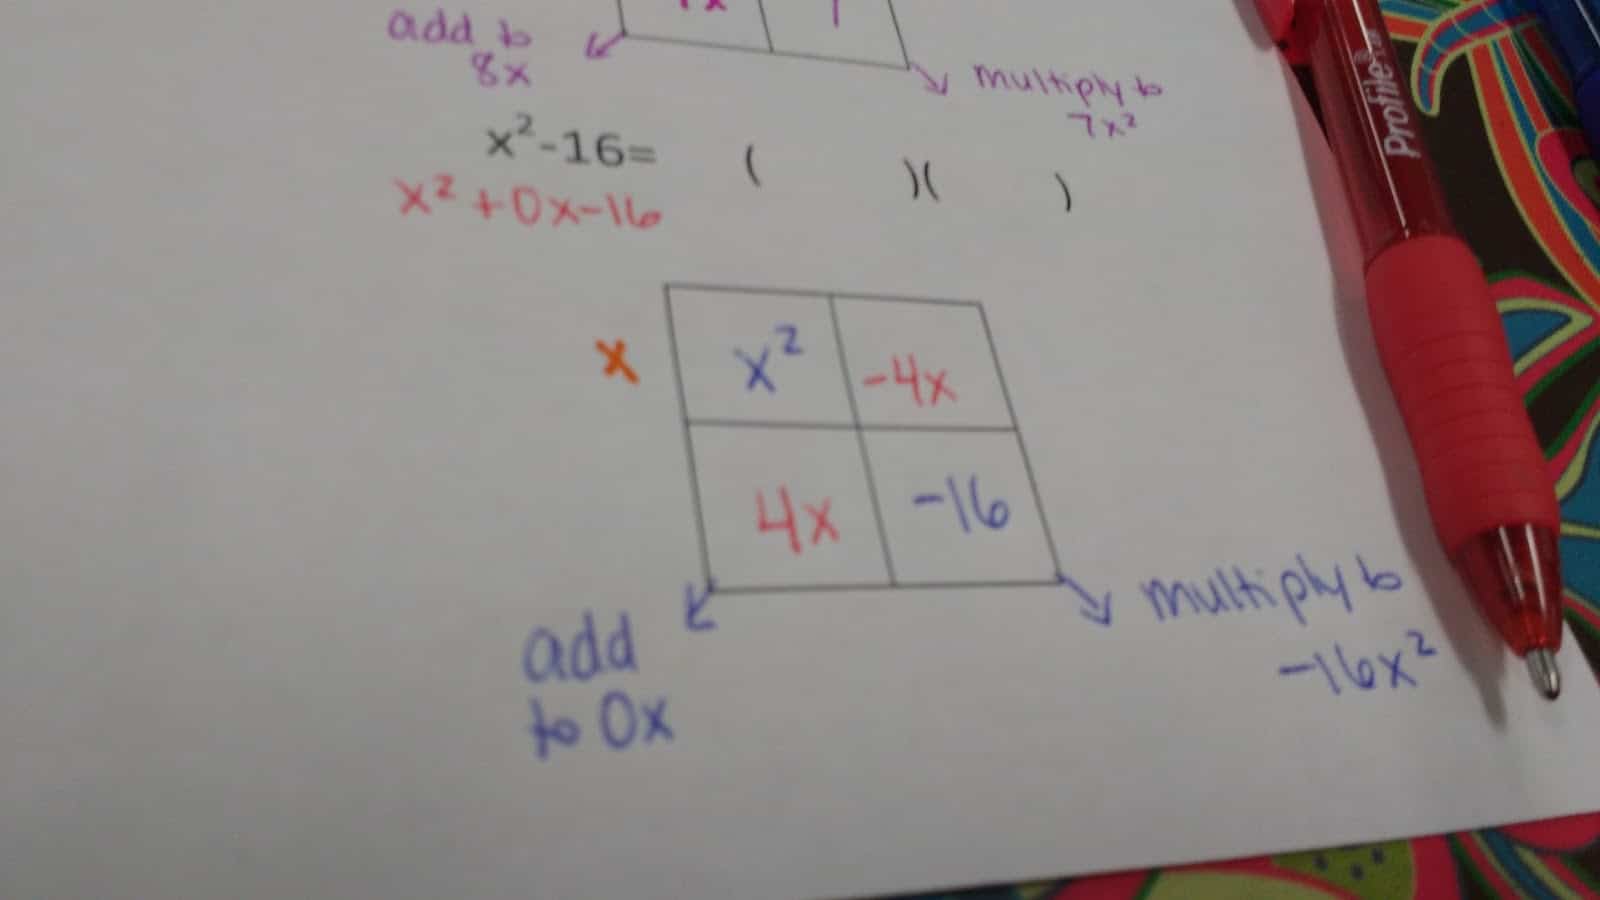 add to
8x
multiply to
7x²
x²-16= ( )( )
x² +0x-16
x
x²
-4x
4x
-16
add
to 0x
multiply to
-16x²
Profile